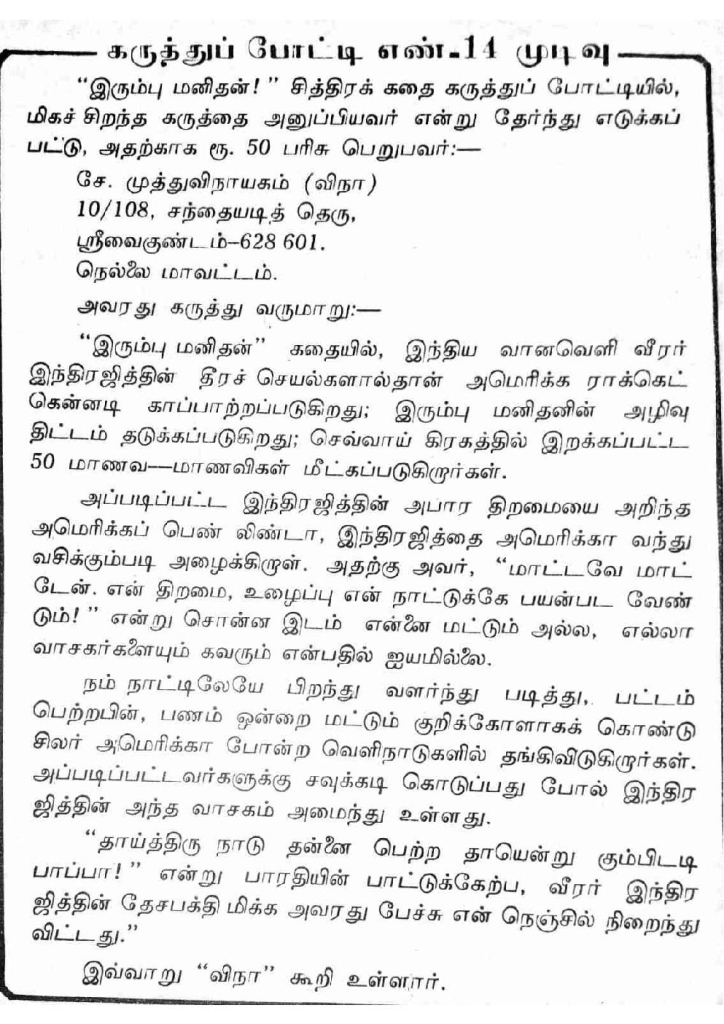 கருத்துப் போட்டி எண்-14 முடிவு
“இரும்பு மனிதன்!” சித்திரக் கதை கருத்துப் போட்டியில்,
மிகச் சிறந்த கருத்தை அனுப்பியவர் என்று தேர்ந்து எடுக்கப்
பட்டு, அதற்காக ரூ. 50 பரிசு பெறுபவர்:—
சே. முத்துவிநாயகம் (விநா)
10/108, சந்தையடித் தெரு,
ஸ்ரீவைகுண்டம்–628 601.
நெல்லை மாவட்டம்.
அவரது கருத்து வருமாறு:—
“இரும்பு மனிதன்” கதையில், இந்திய வானவெளி வீரர்
இந்திரஜித்தின் தீரச் செயல்களால்தான் அமெரிக்க ராக்கெட்
கென்னடி காப்பாற்றப்படுகிறது; இரும்பு மனிதனின் அழிவு
திட்டம் தடுக்கப்படுகிறது; செவ்வாய் கிரகத்தில் இறக்கப்பட்ட
50 மாணவ—மாணவிகள் மீட்கப்படுகிறார்கள்.
அப்படிப்பட்ட இந்திரஜித்தின் அபார திறமையை அறிந்த
அமெரிக்கப் பெண் லிண்டா, இந்திரஜித்தை அமெரிக்கா வந்து
வசிக்கும்படி அழைக்கிறாள். அதற்கு அவர், “மாட்டவே மாட்
டேன். என் திறமை, உழைப்பு என் நாட்டுக்கே பயன்பட வேண்
டும்!” என்று சொன்ன இடம் என்னை மட்டும் அல்ல, எல்லா
வாசகர்களையும் கவரும் என்பதில் ஐயமில்லை.
நம் நாட்டிலேயே பிறந்து வளர்ந்து படித்து, பட்டம்
பெற்றபின், பணம் ஒன்றை மட்டும் குறிக்கோளாகக் கொண்டு
சிலர் அமெரிக்கா போன்ற வெளிநாடுகளில் தங்கிவிடுகிறார்கள்.
அப்படிப்பட்டவர்களுக்கு சவுக்கடி கொடுப்பது போல் இந்திர
ஜித்தின் அந்த வாசகம் அமைந்து உள்ளது.
“தாய்த்திரு நாடு தன்னை பெற்ற தாயென்று கும்பிடடி
பாப்பா!” என்று பாரதியின் பாட்டுக்கேற்ப, வீரர் இந்திர
ஜித்தின் தேசபக்தி மிக்க அவரது பேச்சு என் நெஞ்சில் நிறைந்து
விட்டது.”
இவ்வாறு “விநா” கூறி உள்ளார்.